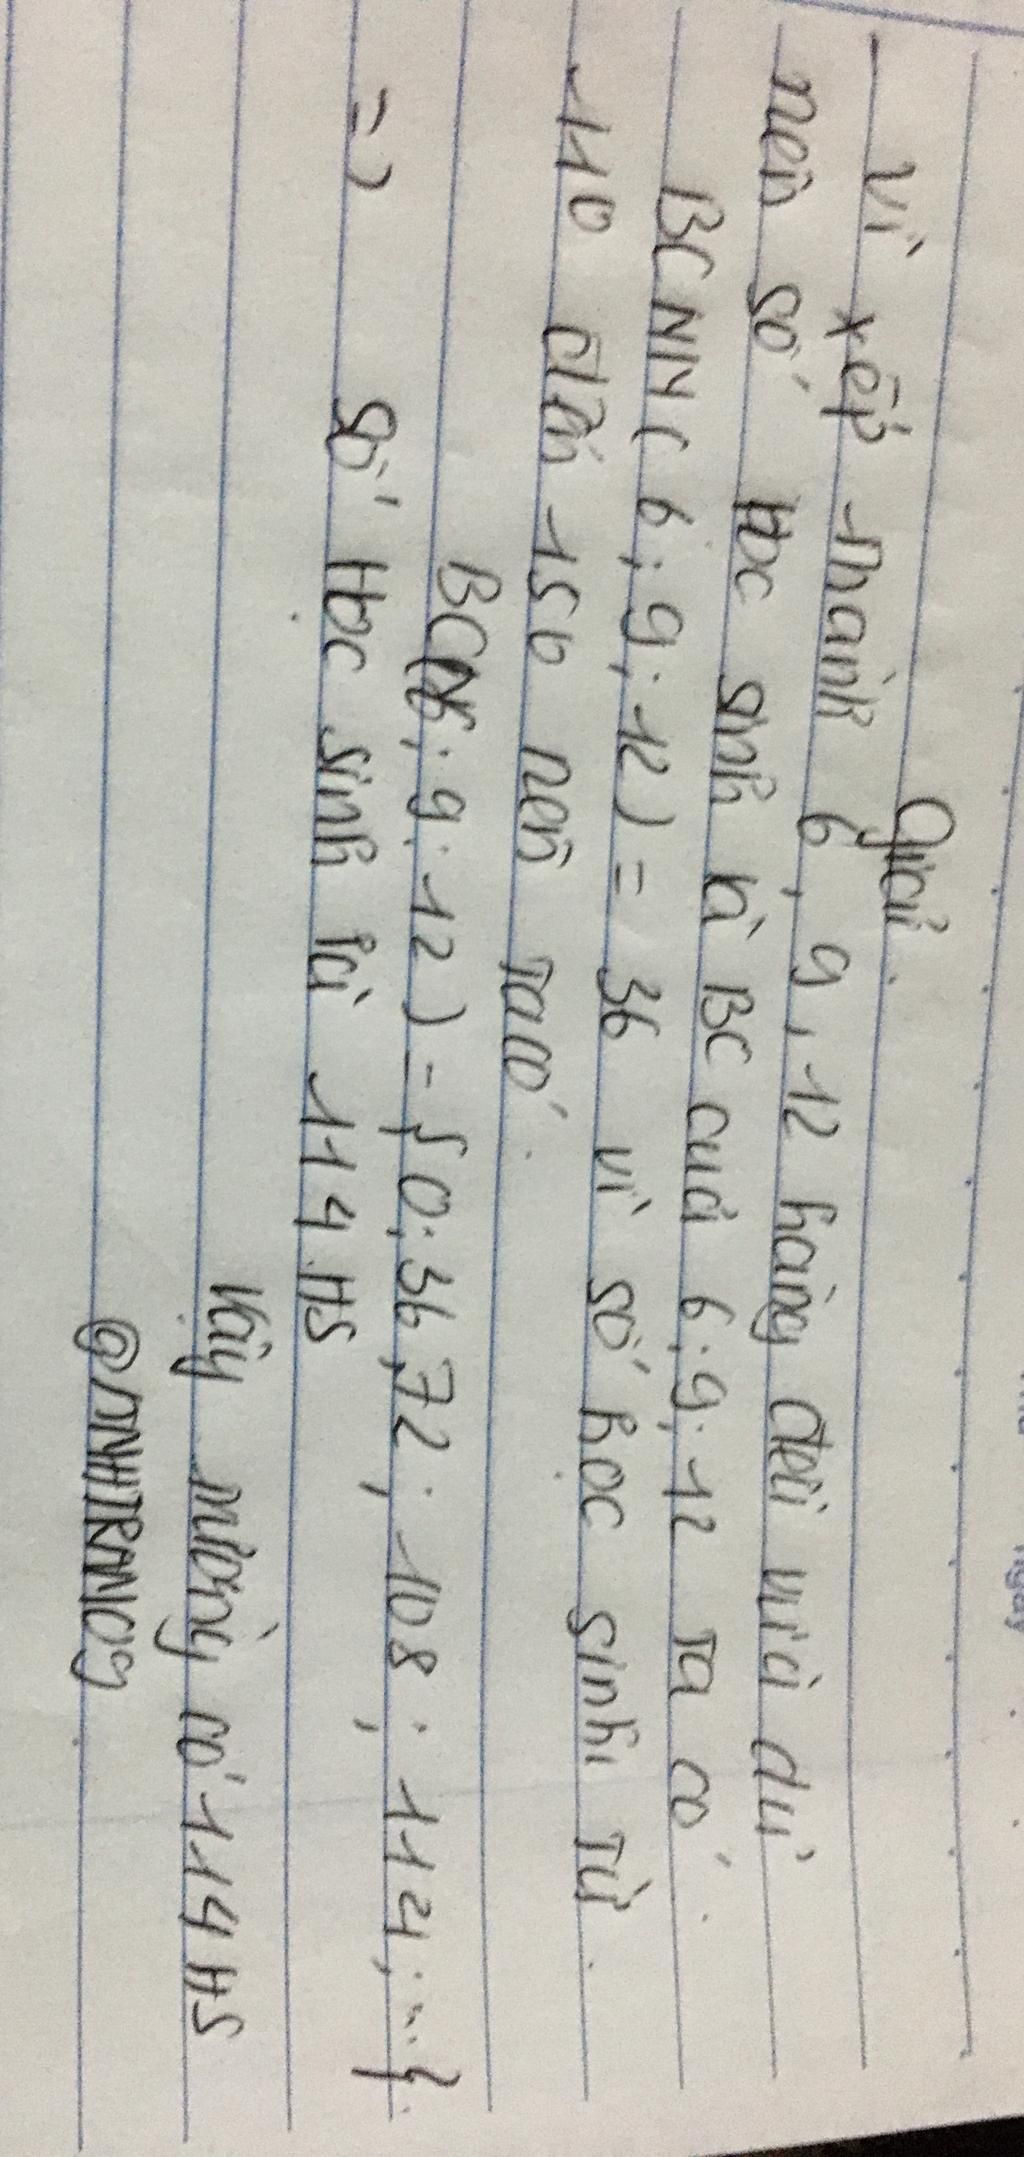 Giải
- Vì xếp thành 6, 9, 12 hàng đều vừa đủ
nên số Học sinh là BC của 6; 9; 12 ta có
BCNN( 6; 9; 12) = 36 vì số học sinh từ
110 đến 150 nên ta có
BC(6; 9; 12) = {0; 36, 72; 108; 114; ...}
=> Số Học sinh là 114 HS
Vậy mường có 114 HS
@MNHITRAN109
ngày